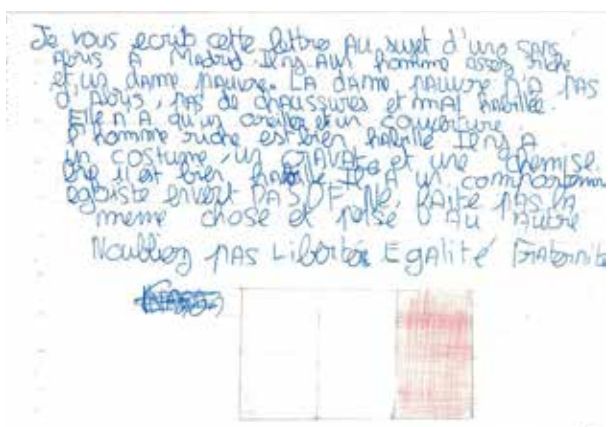 Je vous ecrit cette lettre Au sujet d'une sans
Abris A Madrid. Il y A un homme assez riche
et un dame pauvre. LA dAme pauvre n'A pAs
d'Abris, pAs de chaussures et mAl habillée.
Elle n'A qu'un oreiller et un couverture.
L'homme riche est bien habillé Il y A
un costume, un cravate et une chemise.
il est bien habillé Il A un comportemen
egoiste envert LA SDF. Ne faite pAs lA
meme chose et pense Au Autre
Noubliez pAs Libertée EgAlité Fraternite